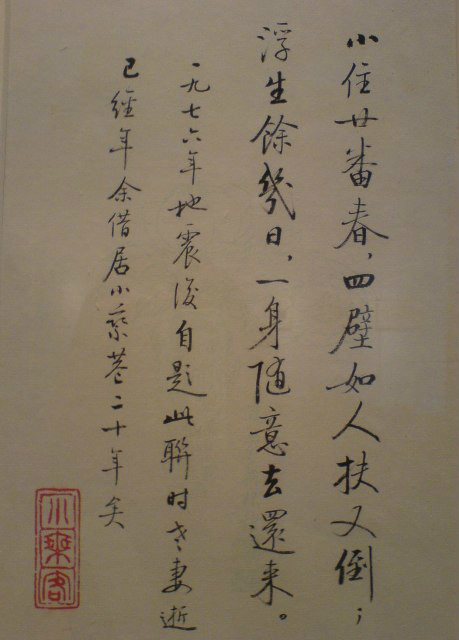 小住廿番春，四壁如人扶又倒；
浮生餘幾日，一身随意去還来。
一九七六年地震後自題此聯时老妻逝
已經年余借居小乘巷二十年矣
小乘客